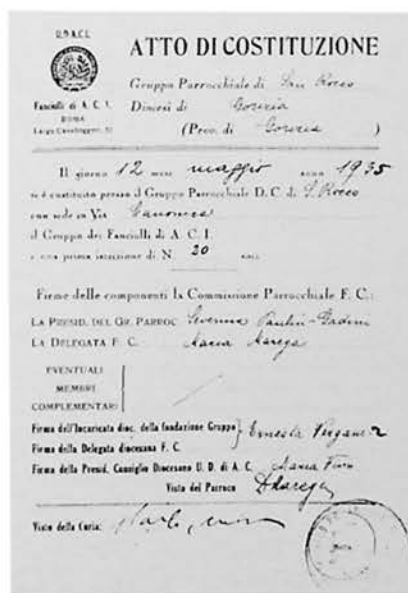 U.D.A.C.I.
Fanciulli di A. C. I.
ROMA
ATTO DI COSTITUZIONE
Gruppo Parrocchiale di San Rocco
Diocesi di Gorizia
(Prov. di Gorizia )
Il giorno 12 mese maggio anno 1935
si è costituito presso il Gruppo Parrocchiale D. C. di S. Rocco
con sede in Via Canonica
il Gruppo dei Fanciulli di A. C. I.
e una prima iscrizione di N. 20 soci.
Firme delle componenti la Commissione Parrocchiale F. C.:
LA PRESID. DEL GR. PARROC. Severina Paulin-Gadini
LA DELEGATA F. C. Maria Marega
EVENTUALI
MEMBRI
COMPLEMENTARI
Firma dell'Incaricata dioc. della fondazione Gruppo
Firma della Delegata diocesana F. C.
Ernesta
Firma della Presid. Consiglio Diocesano U. D. di A. C. Maria
Visto del Parroco
Visto della Curia: